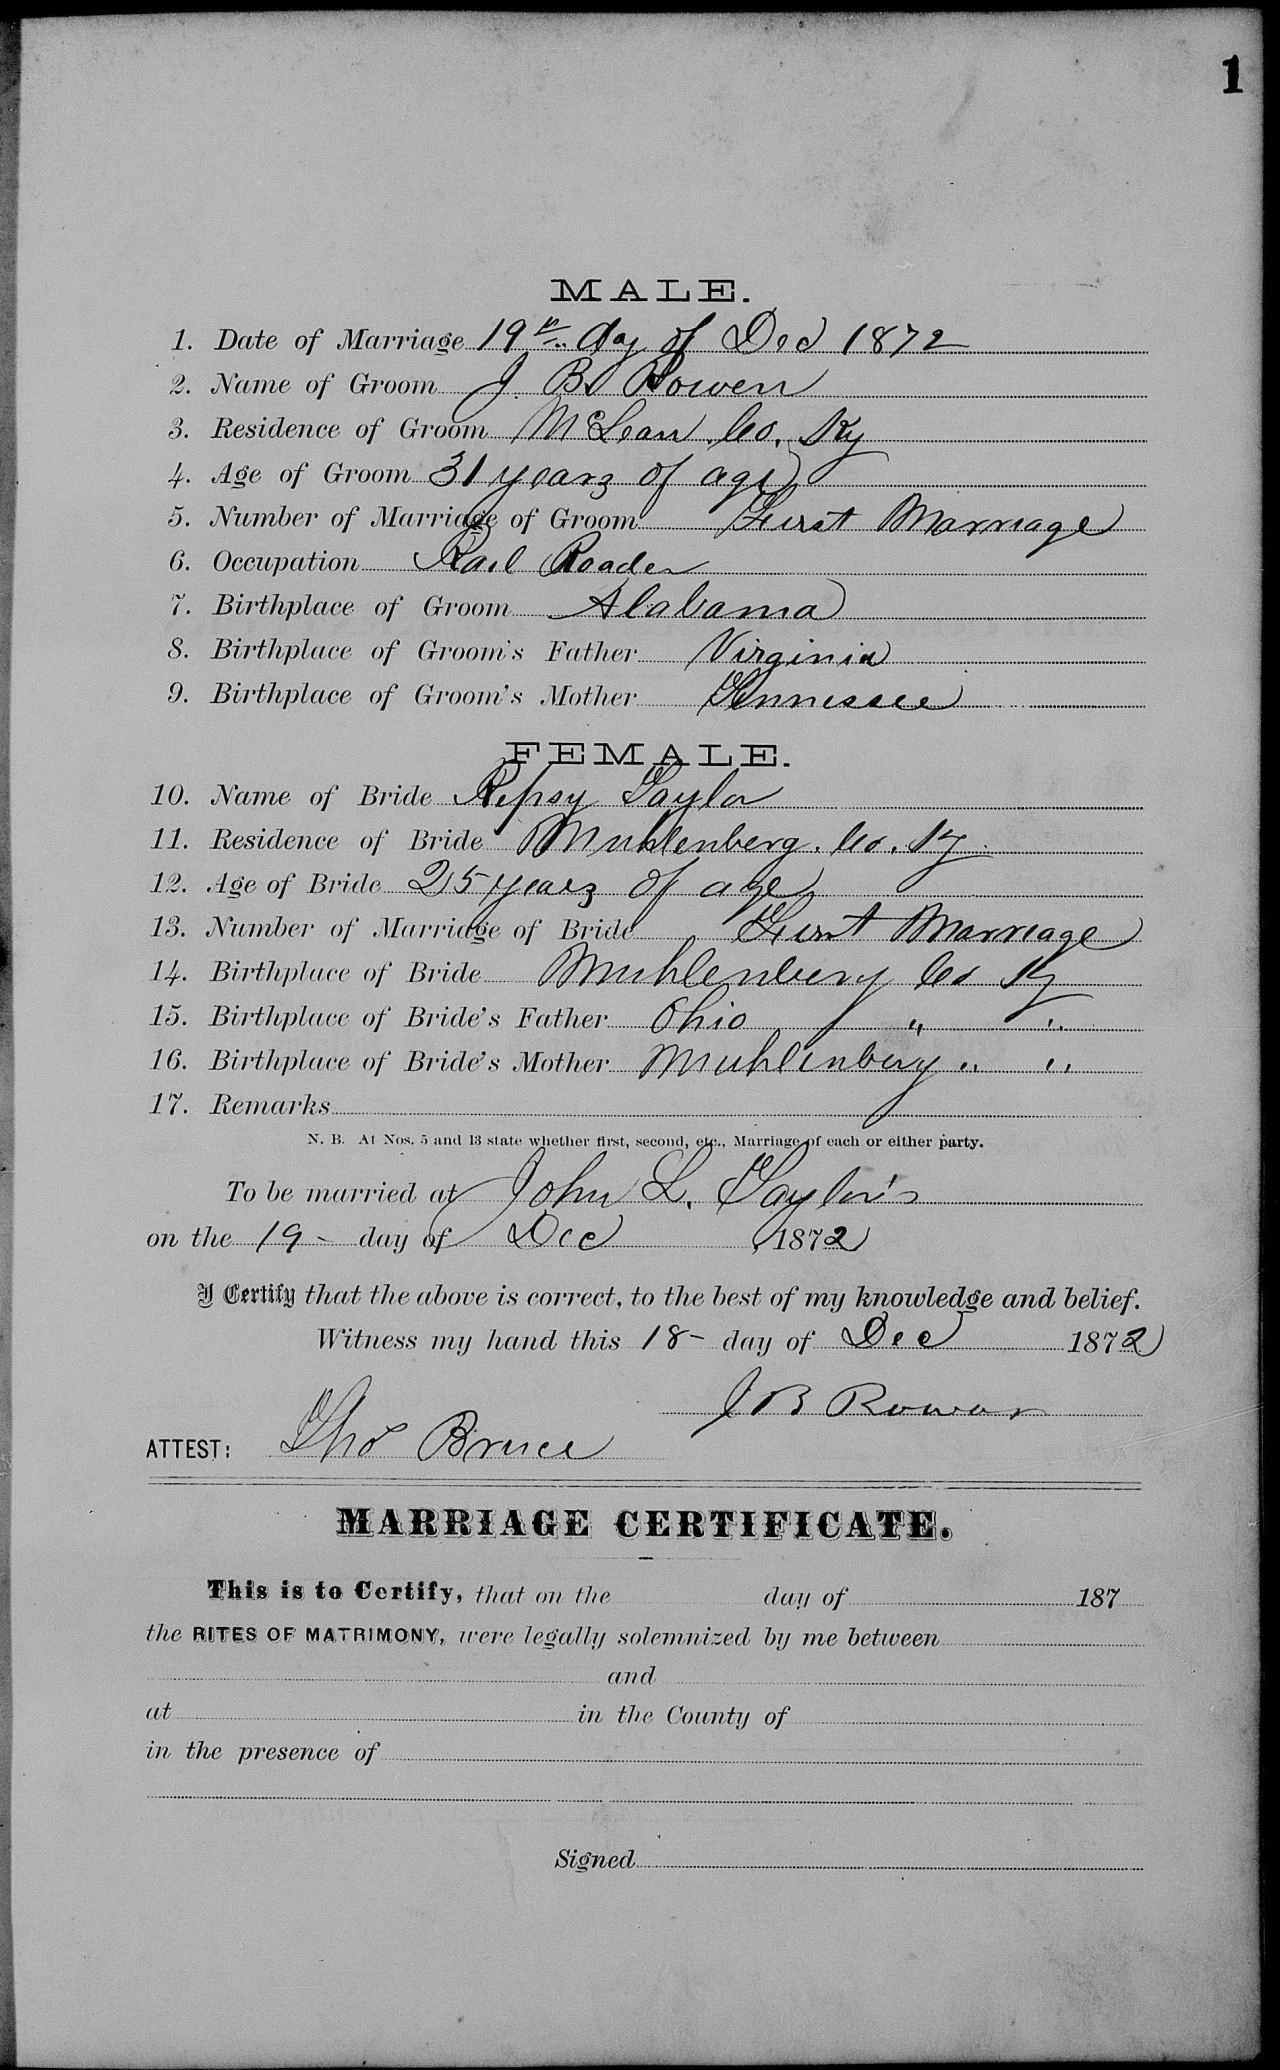 1
MALE.
1. Date of Marriage 19th day of Dec 1872
2. Name of Groom J. B. Rowen
3. Residence of Groom McLean Co. Ky
4. Age of Groom 31 years of age
5. Number of Marriage of Groom First Marriage
6. Occupation Rail Roader
7. Birthplace of Groom Alabama
8. Birthplace of Groom's Father Virginia
9. Birthplace of Groom's Mother Tennessee
FEMALE.
10. Name of Bride Repsy Taylor
11. Residence of Bride Muhlenberg. Co. Ky
12. Age of Bride 25 years of age
13. Number of Marriage of Bride First Marriage
14. Birthplace of Bride Muhlenberg Co Ky
15. Birthplace of Bride's Father Ohio " "
16. Birthplace of Bride's Mother Muhlenberg " "
17. Remarks
N. B. At Nos. 5 and 13 state whether first, second, etc., Marriage of each or either party.
To be married at John L. Taylor's
on the 19 - day of Dec , 1872
I Certify that the above is correct, to the best of my knowledge and belief.
Witness my hand this 18 - day of Dec 1872
J B Rowan
ATTEST: Tho Bruce
MARRIAGE CERTIFICATE.
This is to Certify, that on the day of 187
the RITES OF MATRIMONY, were legally solemnized by me between
and
at in the County of
in the presence of
Signed